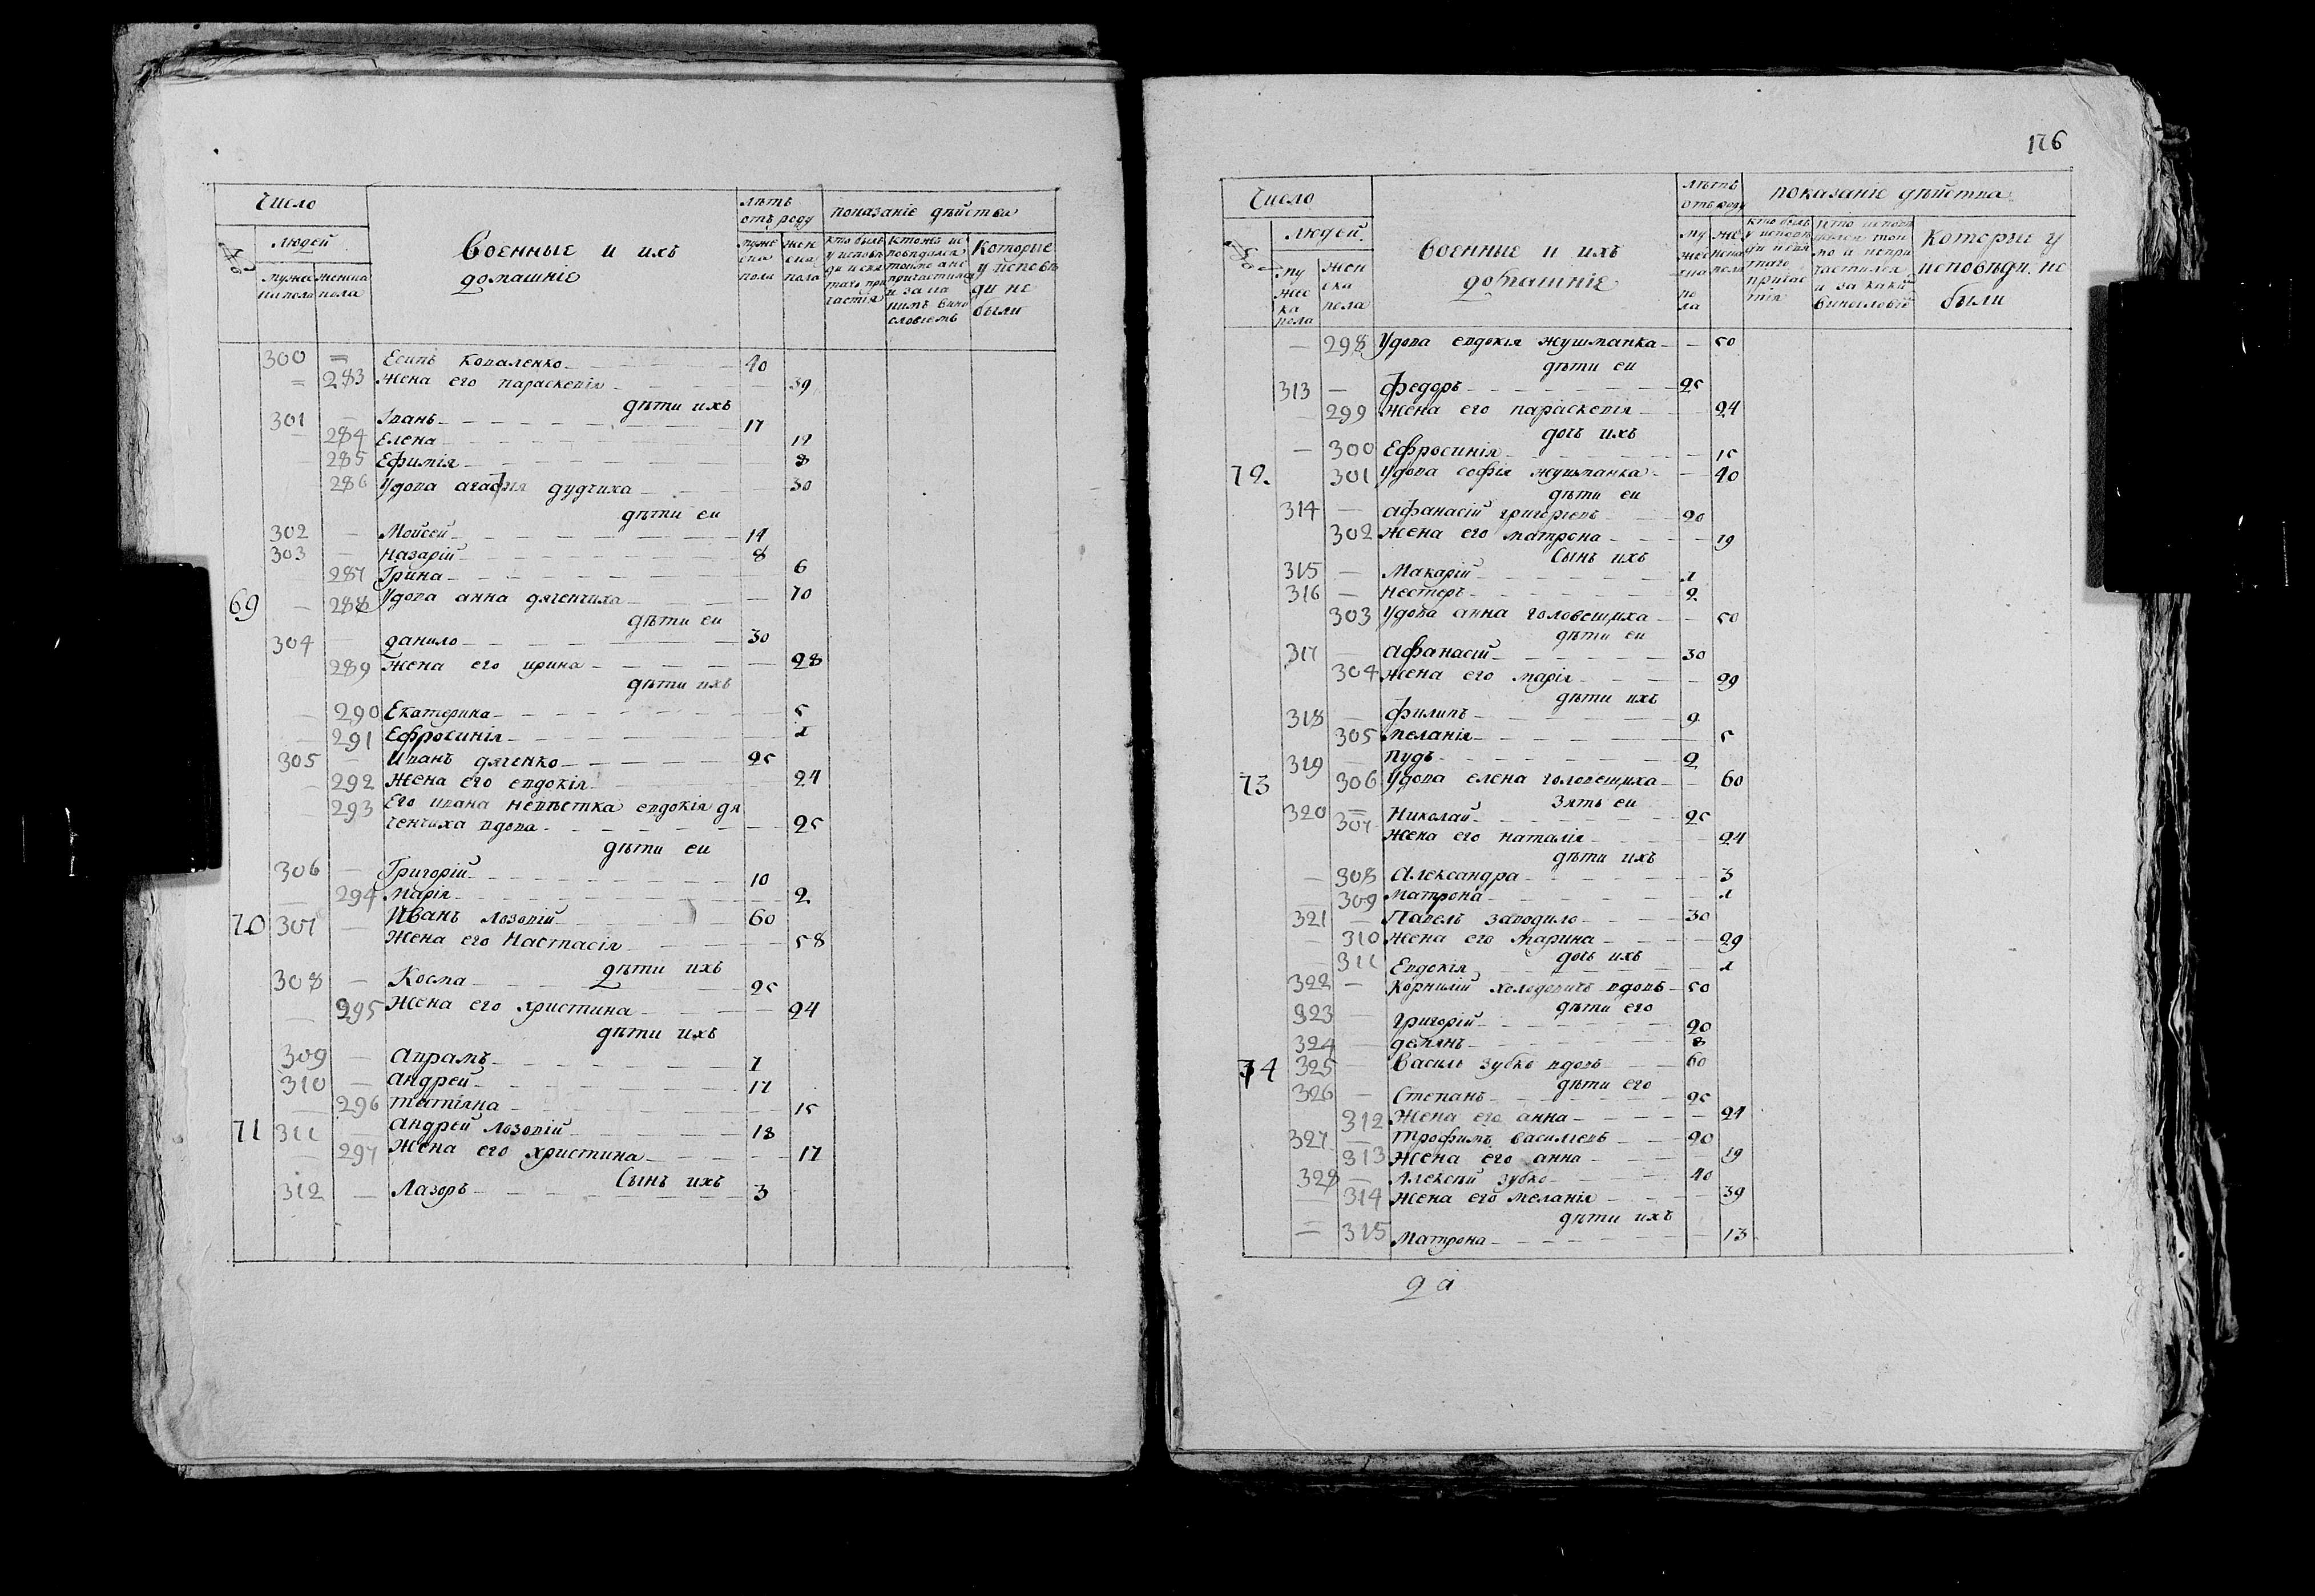 Число
Лѣтъ
отъ роду
показаніе дѣйства
№
людей
Военные и ихъ
домашніе
мужеска пола
женска пола
мужеска пола
женска пола
кто былъ у исповѣди и святаго причастія
Которые у исповѣди не были
300 = Есипъ Коваленко 40
= 283 Жена его параскевія 39
дѣти ихъ
301 — Іванъ 17
— 284 Елена 12
— 285 Ефимія 8
286 Удова агафія дудчиха 30
дѣти еи
302 — Мойсей 14
303 — Назарій 8
— 287 Ірина 6
69 — 288 Удова анна дяченчиха 70
дѣти еи
304 — данило 30
— 289 Жена его ирина 28
дѣти ихъ
— 290 Екатерина 5
— 291 Ефросинія 1
305 — Иванъ дяченко 25
— 292 Жена его евдокія 24
— 293 Его ивана невѣстка евдокія дя
ченчиха вдова 25
дѣти еи
306 — Григорій 10
— 294 Марія 2
70 307 — Иванъ Лозовій 60
Жена его Настасія 58
дѣти ихъ
308 — Косма 25
— 295 Жена его христина 24
дѣти ихъ
309 — Аврамъ 7
310 — Андрей 17
— 296 татіяна 15
71 311 — Андрей Лозовій 18
— 297 Жена его христина 17
Сынъ ихъ
312 — Лазоръ 3
176
Число
лѣтъ
отъ роду
показаніе дѣйства
№
людей
Военные и ихъ
домашніе
мужеска пола
женска пола
мужеска пола
женска пола
кто былъ у исповѣди и святаго причастія
Которые у исповѣди не были
— 298 Удова евдокія жушманка 50
дѣти еи
313 — федоръ 25
— 299 Жена его параскевія 24
дочь ихъ
— 300 Ефросинія 15
72. 301 Удова софія жушманка 40
дѣти еи
314 — Афанасій григоріевъ 20
302 Жена его матрона 19
Сынъ ихъ
315 — Макарій 1
316 — Нестеръ 2
303 Удова анна головещиха 50
дѣти еи
317 — Афанасій 30
304 Жена его марія 29
дѣти ихъ
318 — филипъ 9
305 меланія 5
319 — пудъ 2
73 306 Удова елена головещиха 60
зять еи
320 = Николай 25
307 Жена его наталія 24
дѣти ихъ
— 308 Александра 3
— 309 Матрона 1
321 — Павелъ заводило 30
— 310 Жена его марина 29
дочь ихъ
— 311 Евдокія 1
322 — Корнилій холодовичъ вдовъ 50
дѣти его
323 — григорій 20
324 — демянъ 8
74 325 — Василь зубко вдовъ 60
дѣти его
326 — Степанъ 25
312 Жена его анна 24
327 — трофимъ василіевъ 20
313 Жена его анна 19
328 — Алексѣй зубко 40
— 314 Жена его меланія 39
дѣти ихъ
= 315 Матрона 13